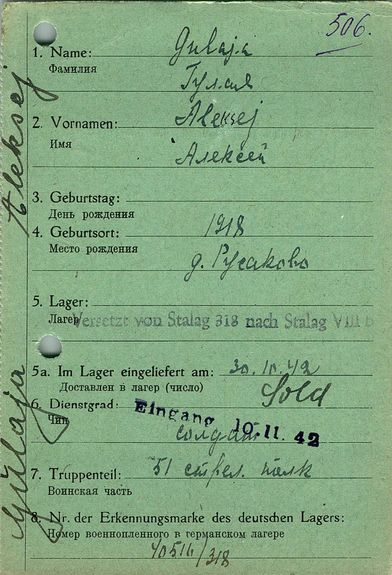 506.
1. Name: Gulaja
Фамилия Гулая
2. Vornamen: Aleksej
Имя Алексей
3. Geburtstag:
День рождения
4. Geburtsort: 1918
Место рождения д. Русаково
5. Lager:
Лагерь Versetzt von Stalag 318 nach Stalag VIII B
5a. Im Lager eingeliefert am: 30.10.42
Доставлен в лагерь (число) Sold
6. Dienstgrad: Eingang 10.11.42
Чин солдат
7. Truppenteil: 51 стрел. полк
Воинская часть
8. Nr. der Erkennungsmarke des deutschen Lagers:
Номер военнопленного в германском лагере
40516/318
Gulaja Aleksej